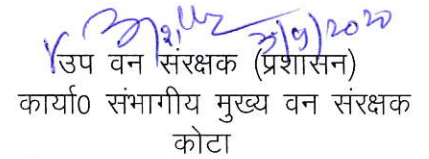 3/9/2020
उप वन संरक्षक (प्रशासन)
कार्या0 संभागीय मुख्य वन संरक्षक
कोटा